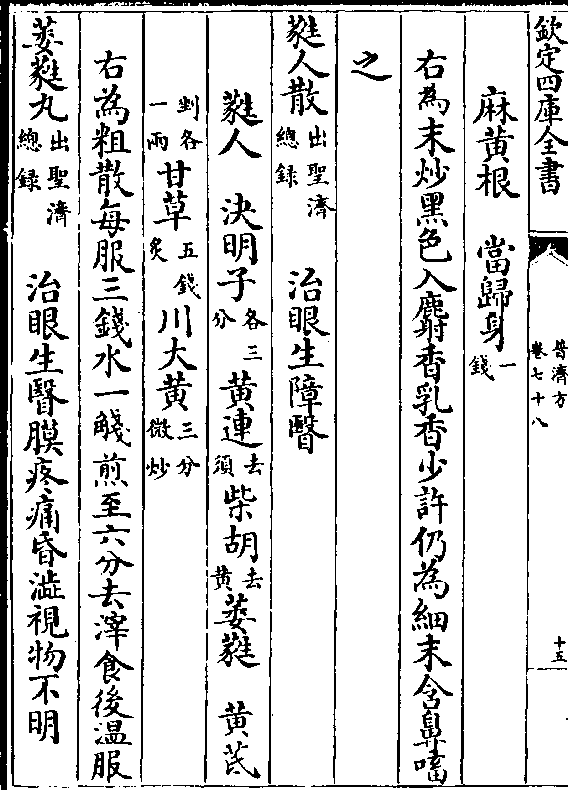 欽定四庫全書
普濟方
卷七十八
十五
麻黃根 當歸身一錢
右為末炒黑色入麝香乳香少許仍為細末含鼻㗜
之
蕤人散出聖濟總録 治眼生障瞖
蕤人 決明子各三分 黄連去須 柴胡去黄 萎蕤 黄芪
剉各一兩 甘草五錢炙 川大黄三分微炒
右為粗散每服三錢水一觥煎至六分去滓食後温服
萎蕤丸出聖濟總録 治眼生瞖膜疼痛昏澁視物不明